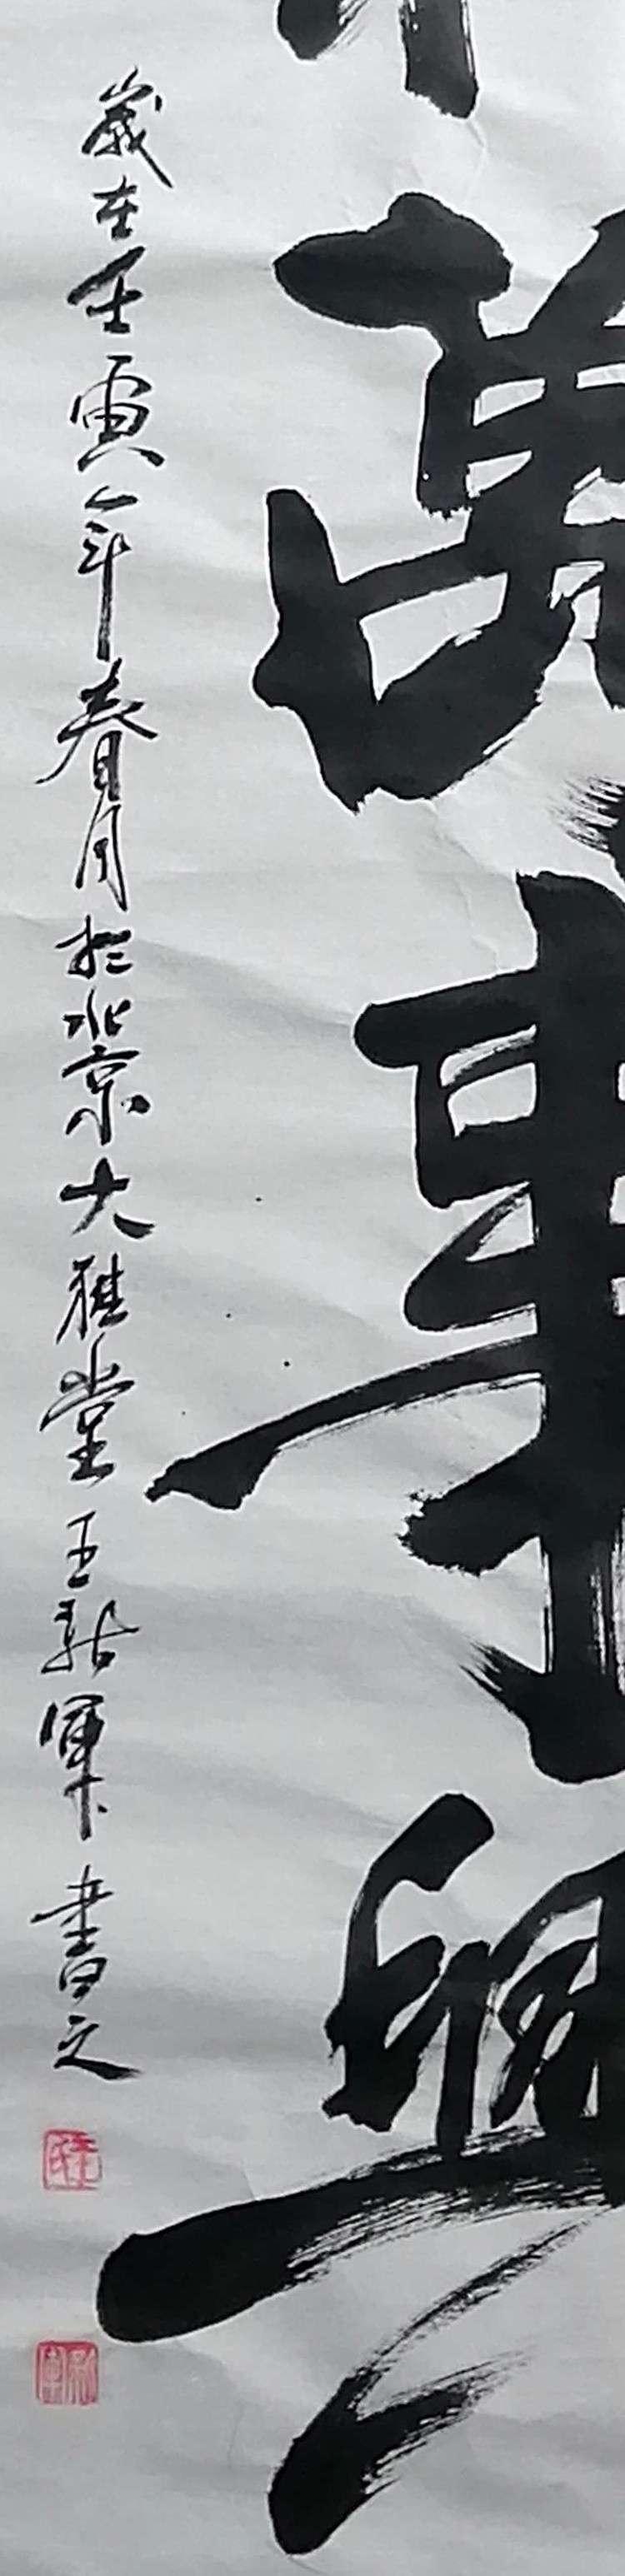 萬事興
歲在壬寅年春月於北京大雅堂王新軍書之